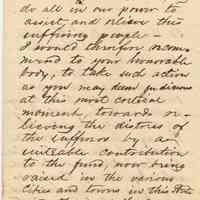 do all in our power to
assist, and relieve this
suffering people —
I would therefor recom-
mend to your honorable
body, to take such action
as you may deem judicious
at this most critical
moment, towards re-
lieving the distress of
the sufferers by an
suitable contribution
to the fund, now being
raised in the various
Cities and towns in this State